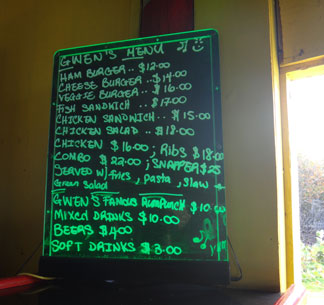 GWEN'S MENU
HAM BURGER.. $12.00
CHEESE BURGER.. $14.00
VEGGIE BURGER.. $16.00
FISH SANDWICH .. $17.00
CHICKEN SANDWICH.. $15.00
CHICKEN SALAD .. $18.00
CHICKEN $16.00; RIBS $18.00
COMBO $22.00; SNAPPER $25
SERVED W/FRIES, PASTA, SLAW
Green Salad
GWEN'S FAMOUS RUMPUNCH $10.00
MIXED DRINKS $10.00
BEERS $4.00
SOFT DRINKS $3.00